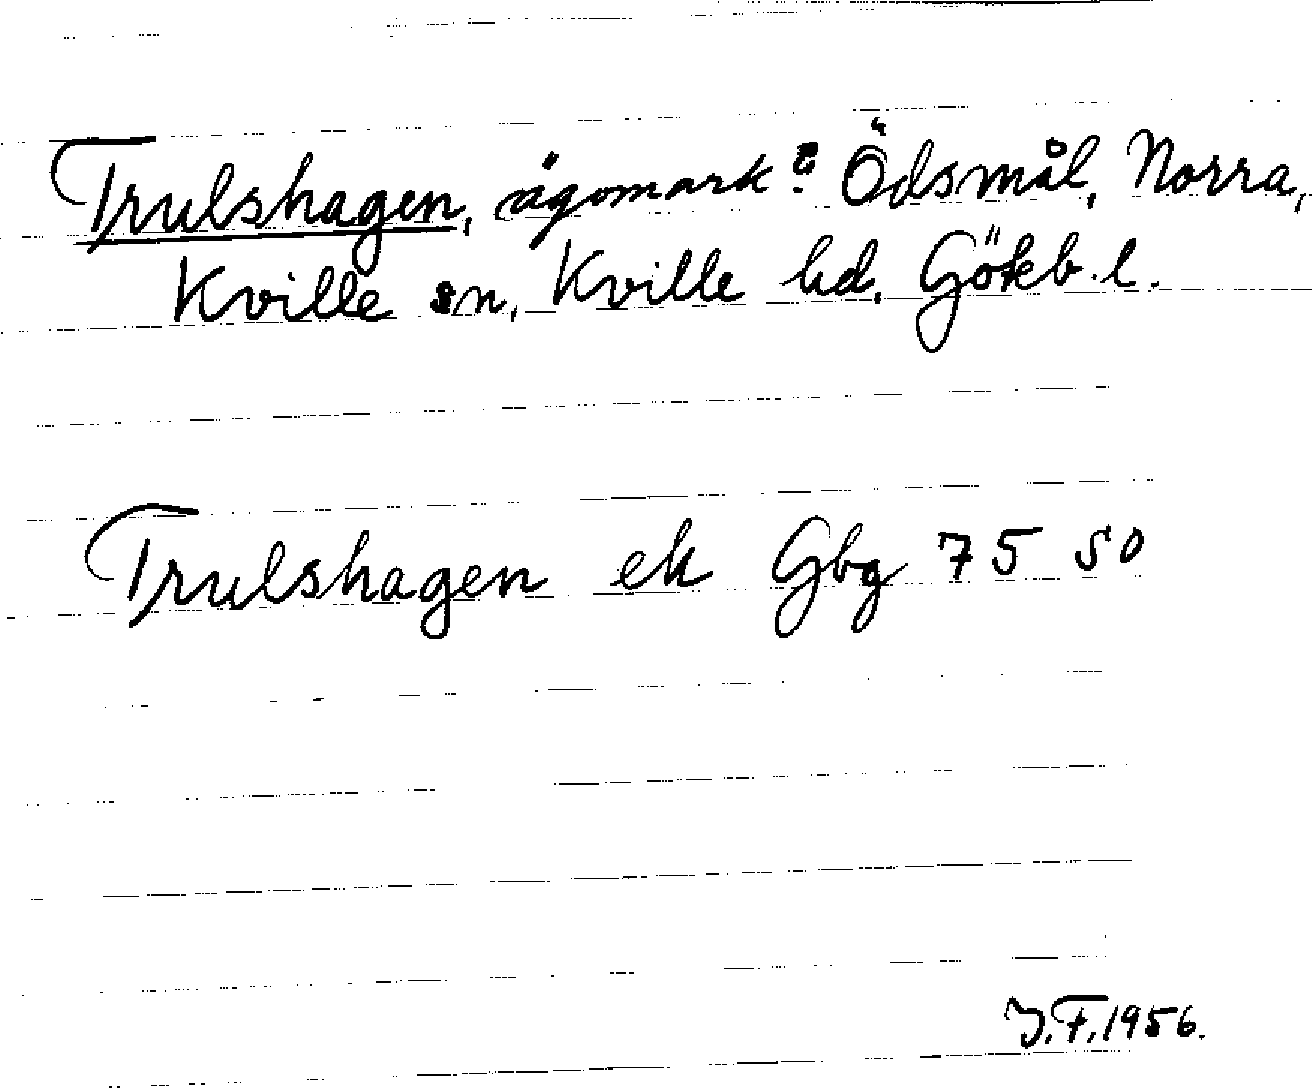 Trulshagen, ägomark? Ödsmål, Norra,
Kville sn, Kville hd. Götebl.
Trulshagen ek Gbg 75 50
J.F. 1956.